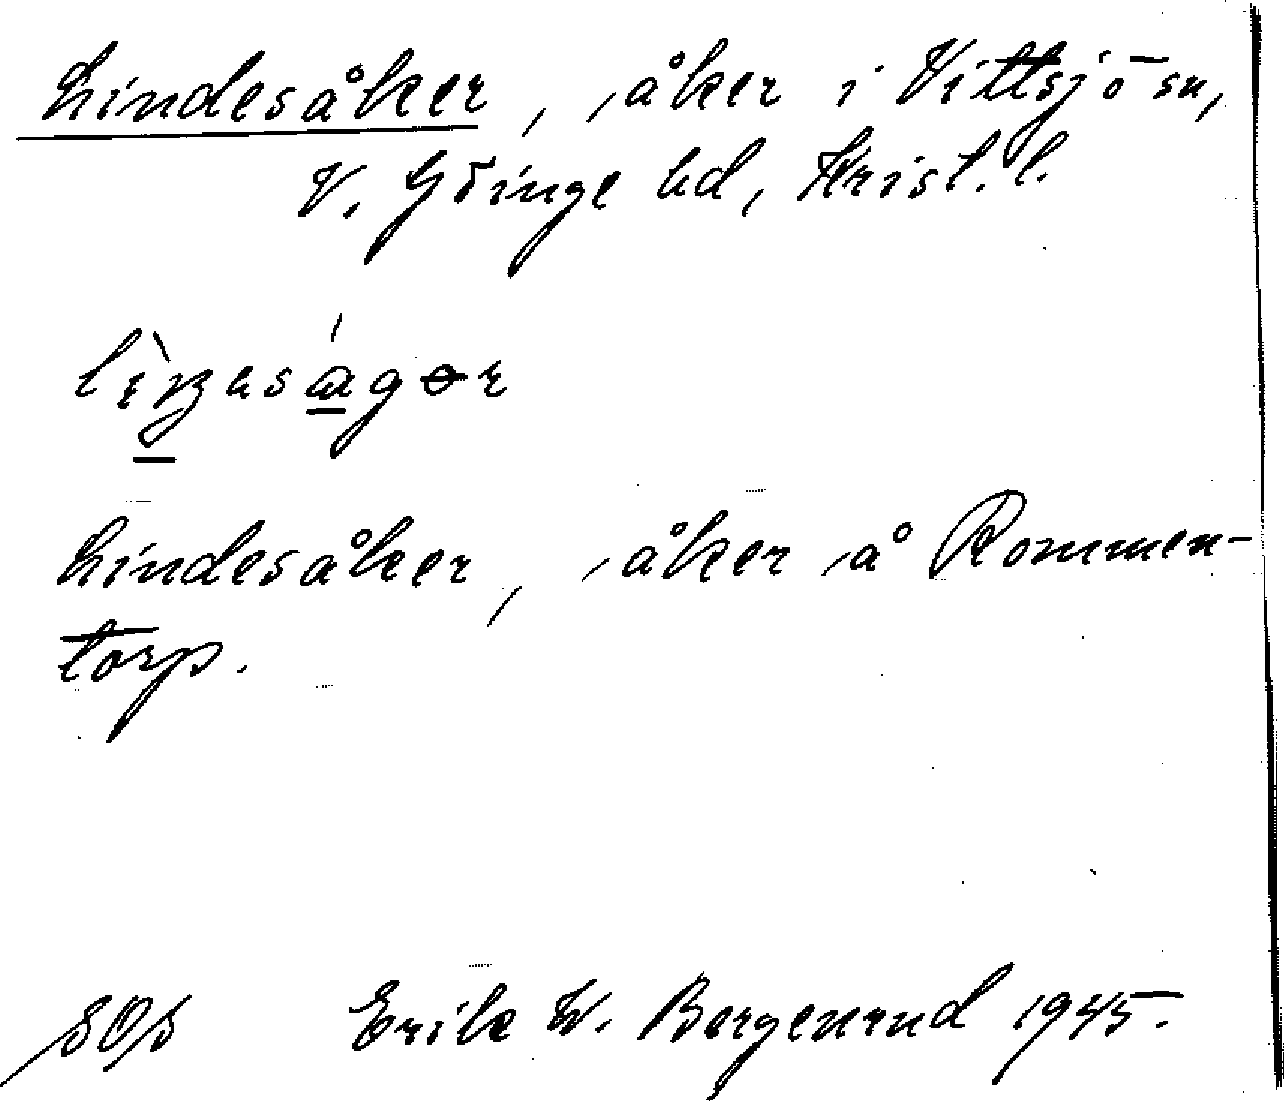 Lindesåker, åker i Vittsjö sn,
V. Göinge hd, Krist. l.
Lindesåker, åker å Rommen-
torp.
Erik W. Bergenrud 1945.